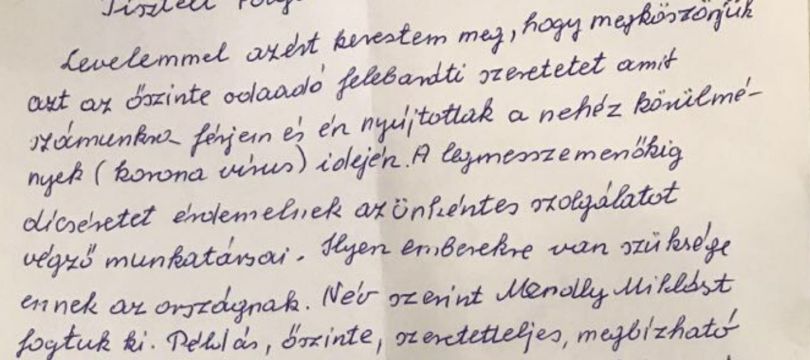 Tisztelt
Levelemmel azért kerestem meg, hogy megköszönjük
azt az őszinte odaadó felebaráti szeretetet amit
számunkra férjem és én nyújtottak a nehéz körülmé-
nyek (korona vírus) idején. A legmesszemenőkig
dicséretet érdemelnek az önkéntes szolgálatot
végző munkatársai. Ilyen emberekre van szüksége
ennek az országnak. Név szerint Miklóst
fogtuk ki. Példás, őszinte, szeretetteljes, megbízható